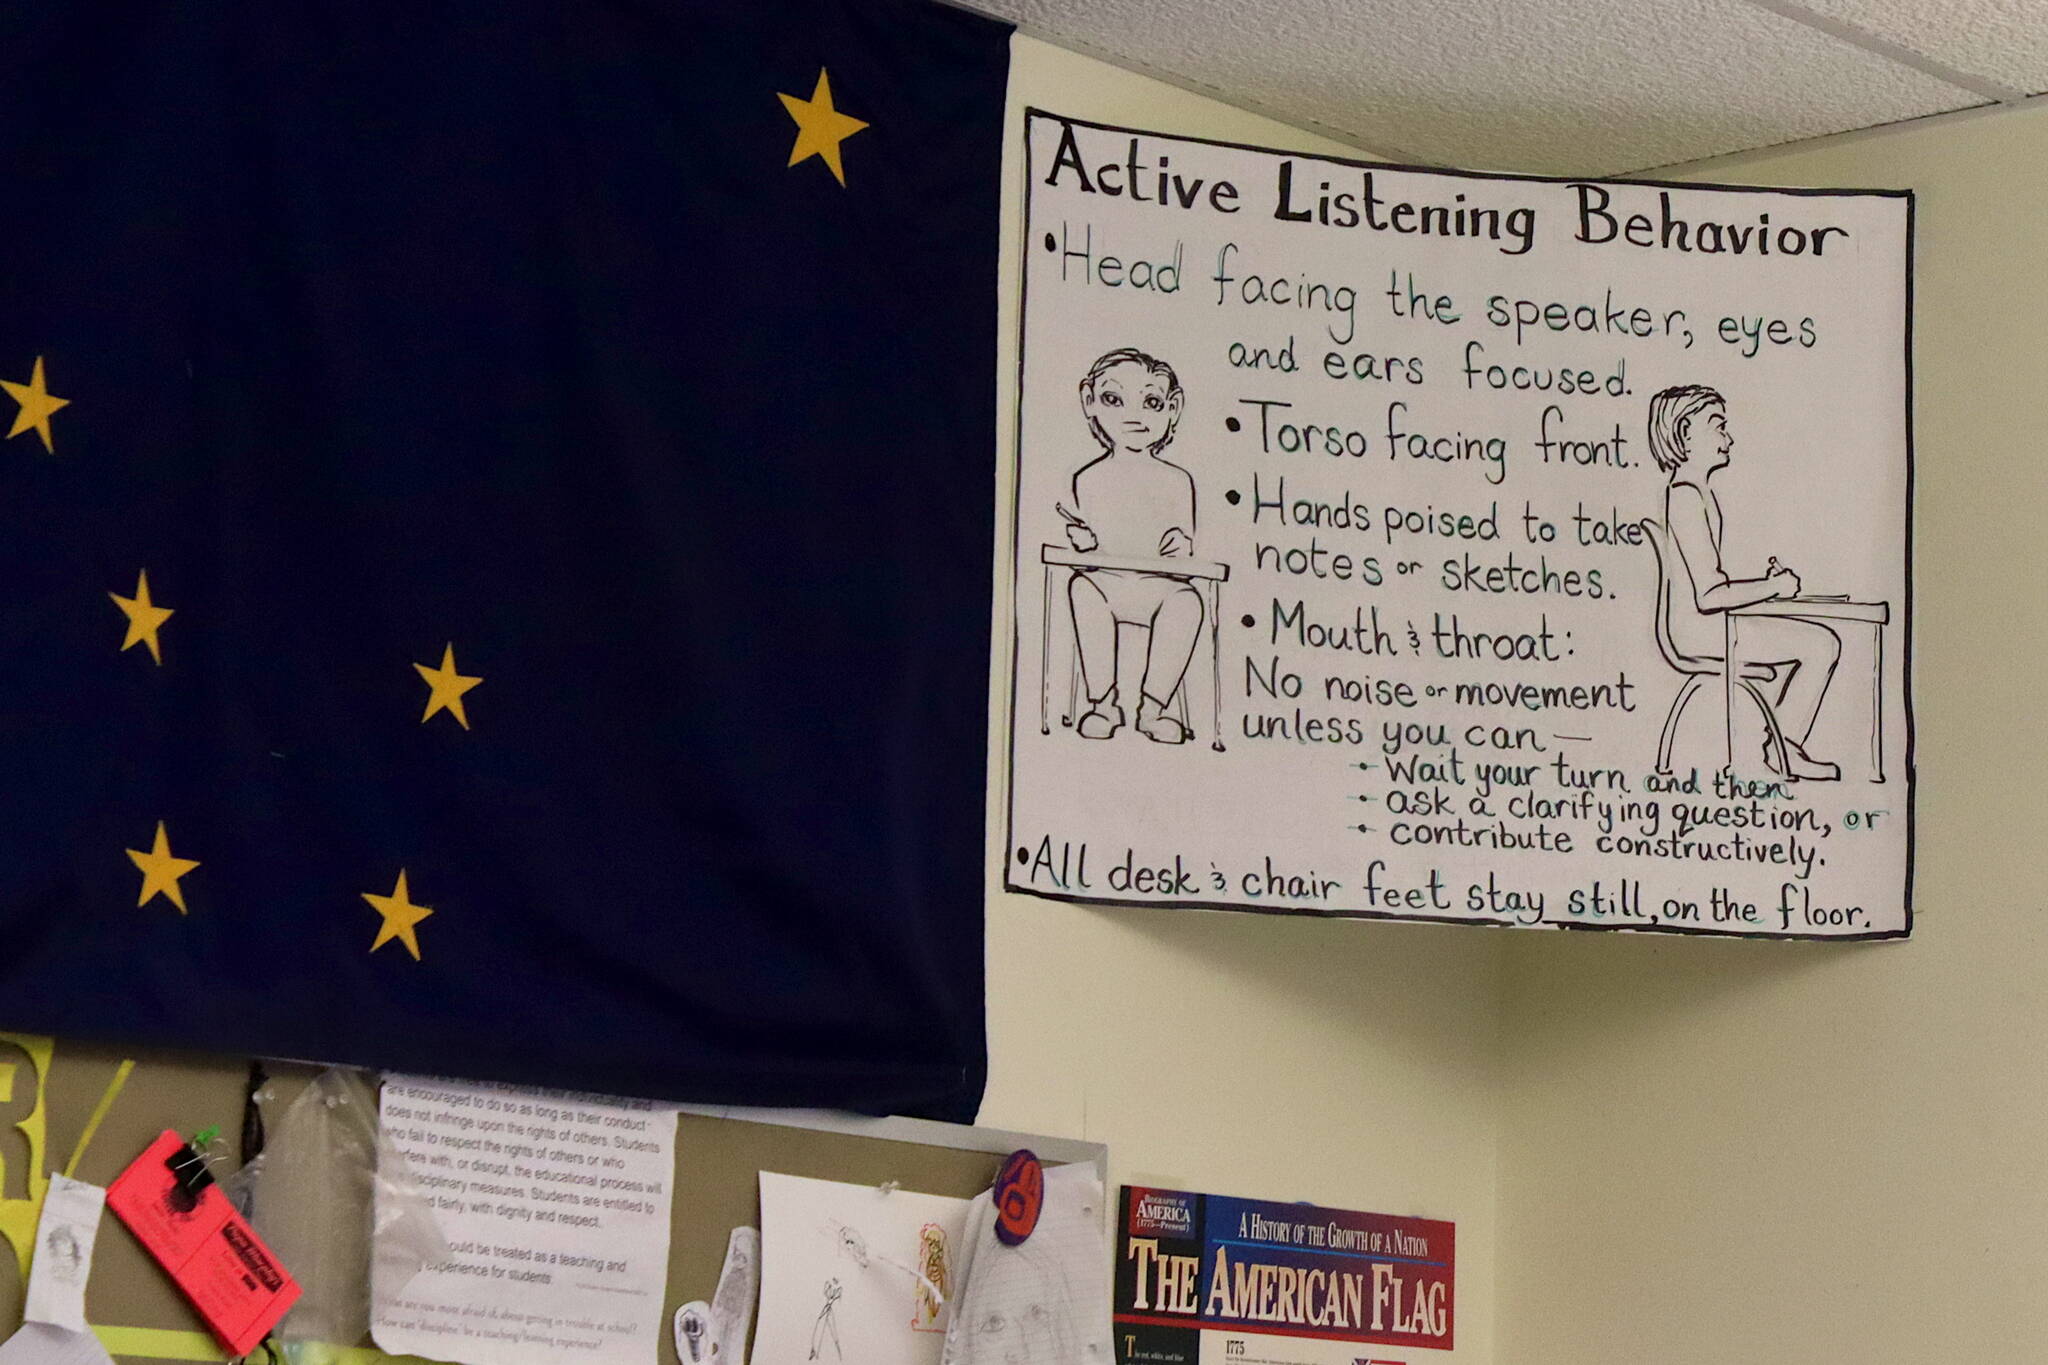 Active Listening Behavior
• Head facing the speaker, eyes
and ears focused.
• Torso facing front.
• Hands poised to take
notes or sketches.
• Mouth & throat:
No noise or movement
unless you can —
• Wait your turn and then
• ask a clarifying question, or
• contribute constructively.
• All desk & chair feet stay still, on the floor.
to express their individuality and
are encouraged to do so as long as their conduct
does not infringe upon the rights of others. Students
who fail to respect the rights of others or who
with, or disrupt, the educational process will
disciplinary measures. Students are entitled to
fairly, with dignity and respect.
ould be treated as a teaching and
experience for students.
are you most afraid of, about getting in trouble at school?
How can "discipline" be a teaching/learning experience?
BIOGRAPHY OF
AMERICA
(1775—Present)
A HISTORY OF THE GROWTH OF A NATION
THE AMERICAN FLAG
The red, white, and blue
1775